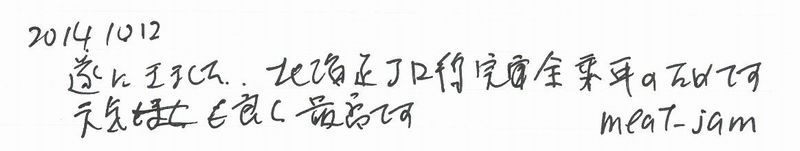 2014 10 12
遂にきました.. 北海道JR線完全乗車のためです
天気も良く最高です meat-jam